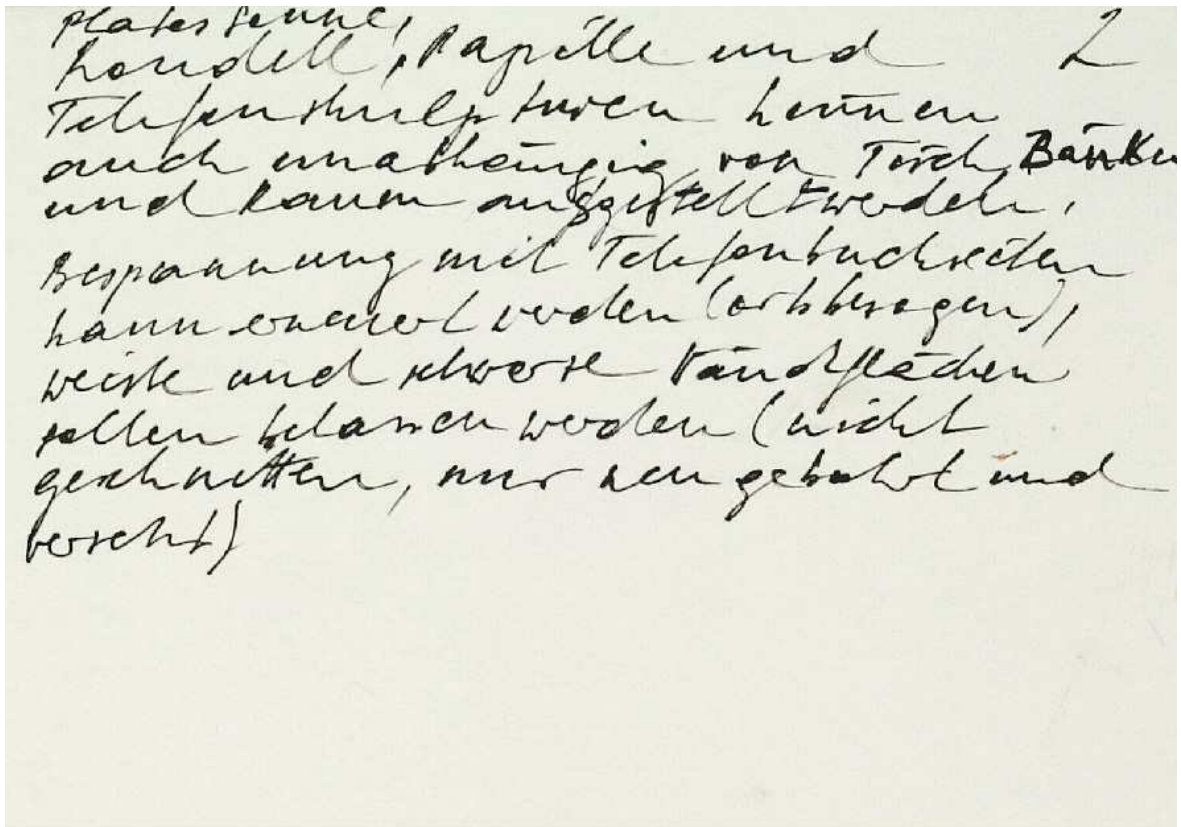 2
Rondell, Papille und
Telefonskulpturen können
auch unabhängig von Tisch Bänken
und Raum aufgestellt werden.
Bespannung mit Telefonbuchseiten
kann erneuert werden (ortsbezogen),
weiße und schwarze Wandflächen
sollen belassen werden (nicht
geschnitten, nur neu gebohrt und